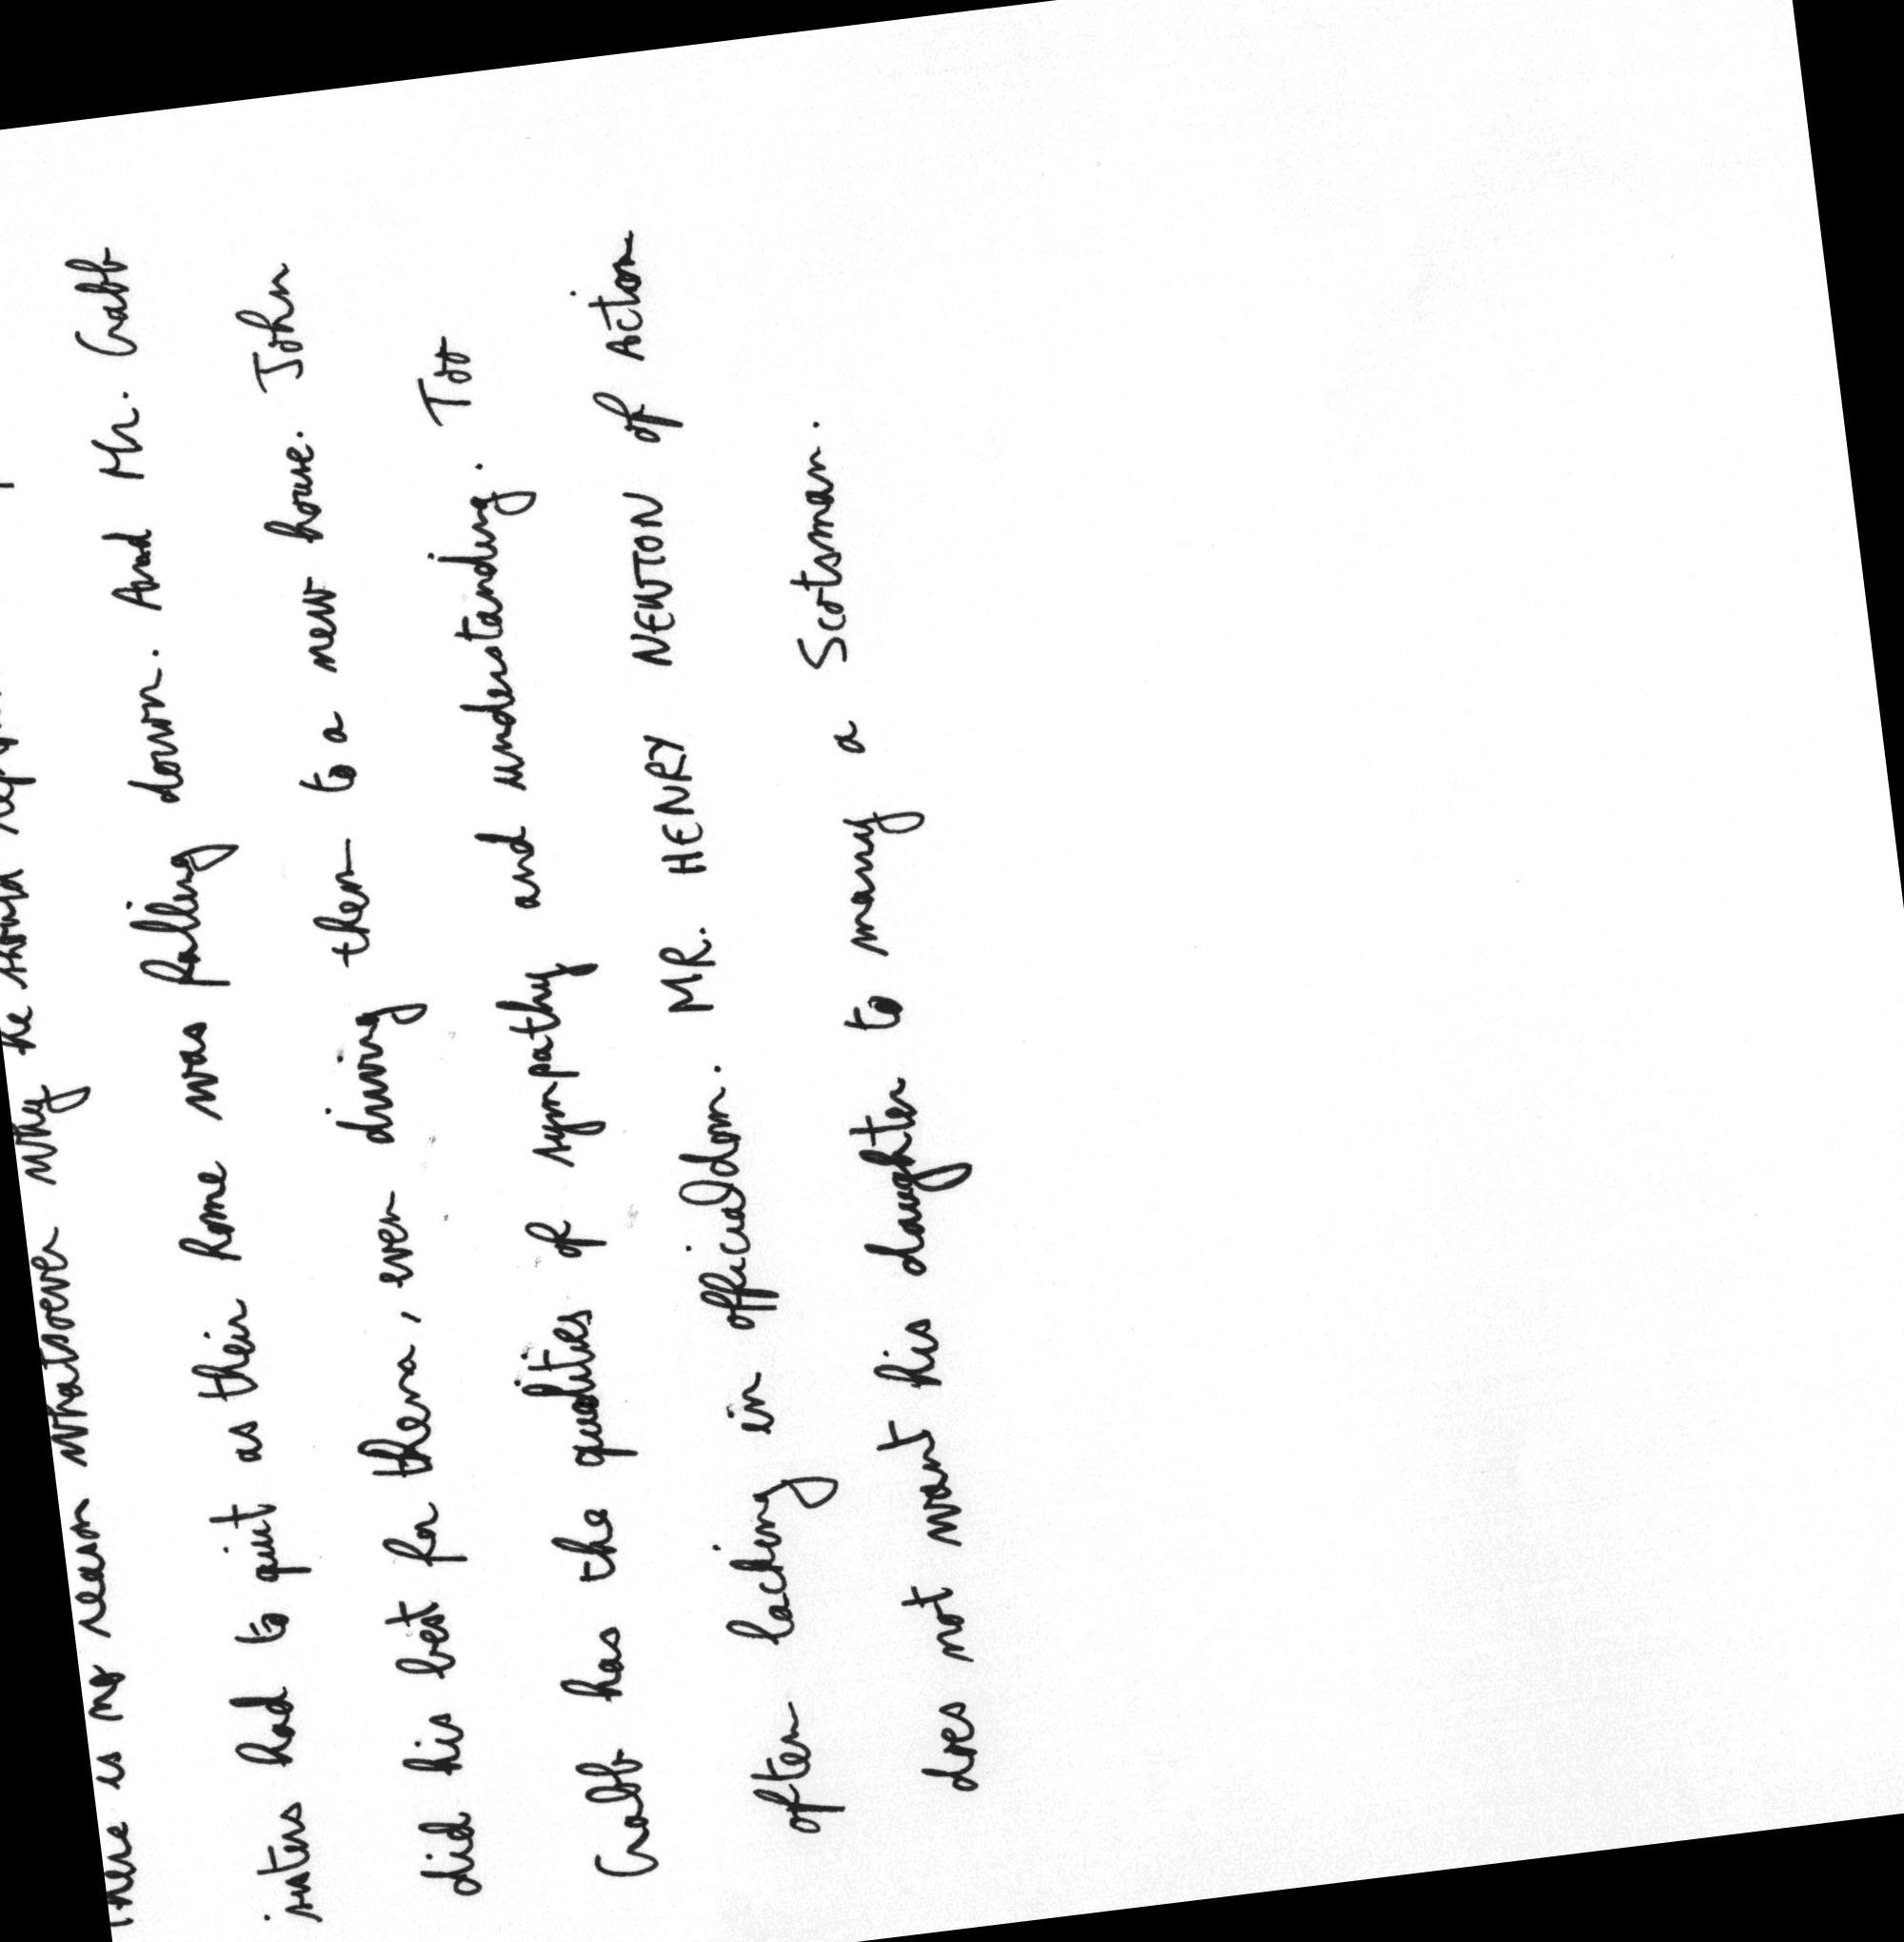 there is no reason whatsoever why he should
sisters had to quit as their home was falling down. And Mr. Crabb
did his best for them, even driving them to a new house. John
Crabb has the qualities of sympathy and understanding. Too
often lacking in officialdom. MR. HENRY NEWTON of Action
does not want his daughter to marry a Scotsman.